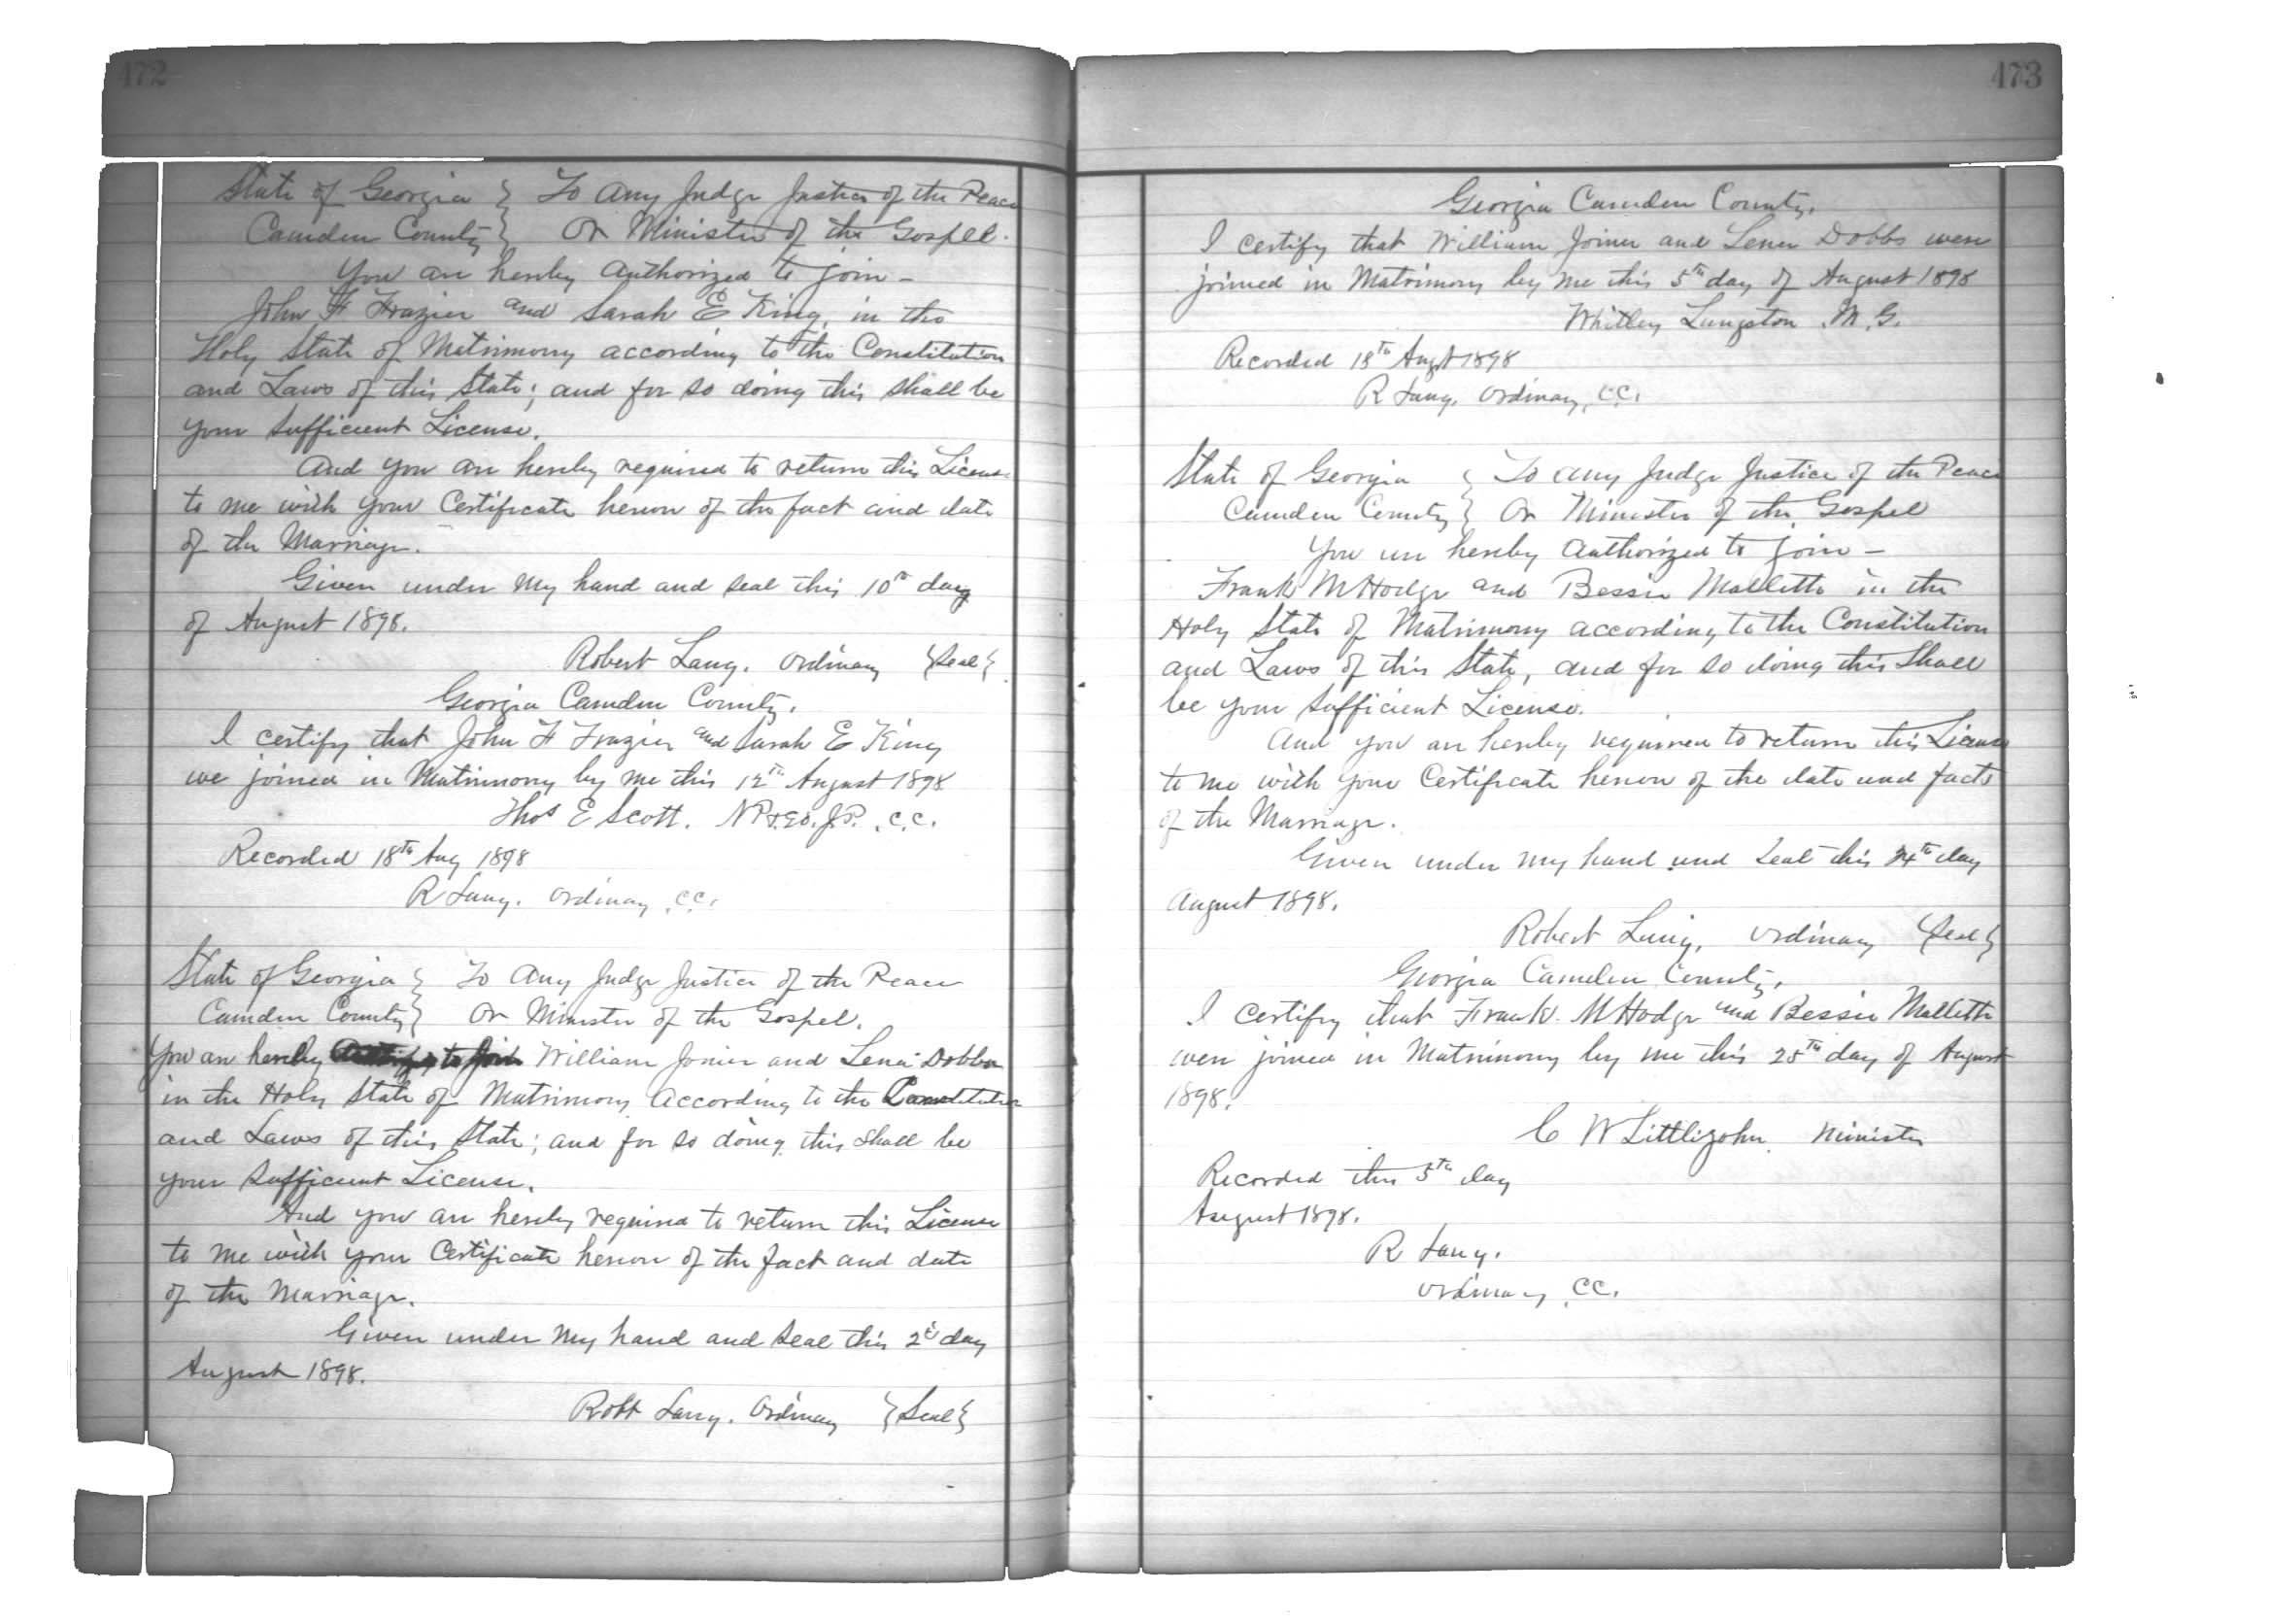 472
State of Georgia } To Any Judge Justice of the Peace
Camden County } Or Minister of the Gospel.
You are hereby Authorized to join —
John F Frazier and Sarah E King, in the
Holy State of Matrimony according to the Constitution
and Laws of this State; and for so doing this shall be
your Sufficient License.
And you are hereby required to return this License
to me with your Certificate hereon of the fact and date
of the Marriage.
Given under my hand and seal this 10th day
of August 1898.
Robert Lang. Ordinary {Seal}
Georgia Camden County.
I certify that John F Frazier and Sarah E King
we joined in Matrimony by me this 12th August 1898
Thos E Scott. J.P. C.C.
Recorded 18th Aug 1898
R Lang. Ordinary C.C.
State of Georgia } To Any Judge Justice of the Peace
Camden County } Or Minister of the Gospel.
You are hereby to join William Joiner and Lena Dobbs
in the Holy State of Matrimony According to the Constitution
and Laws of this State; and for so doing this shall be
your Sufficient License.
And you are hereby required to return this License
to me with your Certificate hereon of the fact and date
of the Marriage.
Given under my hand and seal this 2d day
August 1898.
Robt Lang. Ordinary {Seal}
473
Georgia Camden County.
I certify that William Joiner and Lena Dobbs were
joined in Matrimony by me this 5th day of August 1898
Whitley Langston M.G.
Recorded 18th Augt 1898
R Lang. Ordinary, C.C.
State of Georgia } To any Judge Justice of the Peace
Camden County } Or Minister of the Gospel
You are hereby Authorized to join —
Frank M Hodge and Bessie Mallette in the
Holy State of Matrimony according to the Constitution
and Laws of this State, and for so doing this Shall
be your Sufficient License.
And you are hereby required to return this License
to me with your Certificate hereon of the date and facts
of the Marriage.
Given under my hand and Seal this 24th day
August 1898.
Robert Lang, Ordinary {Seal}
Georgia Camden County,
I certify that Frank M Hodge and Bessie Mallette
were joined in Matrimony by me this 25th day of August
1898.
C W Littlejohn Minister
Recorded this 5th day
August 1898.
R Lang.
Ordinary CC.